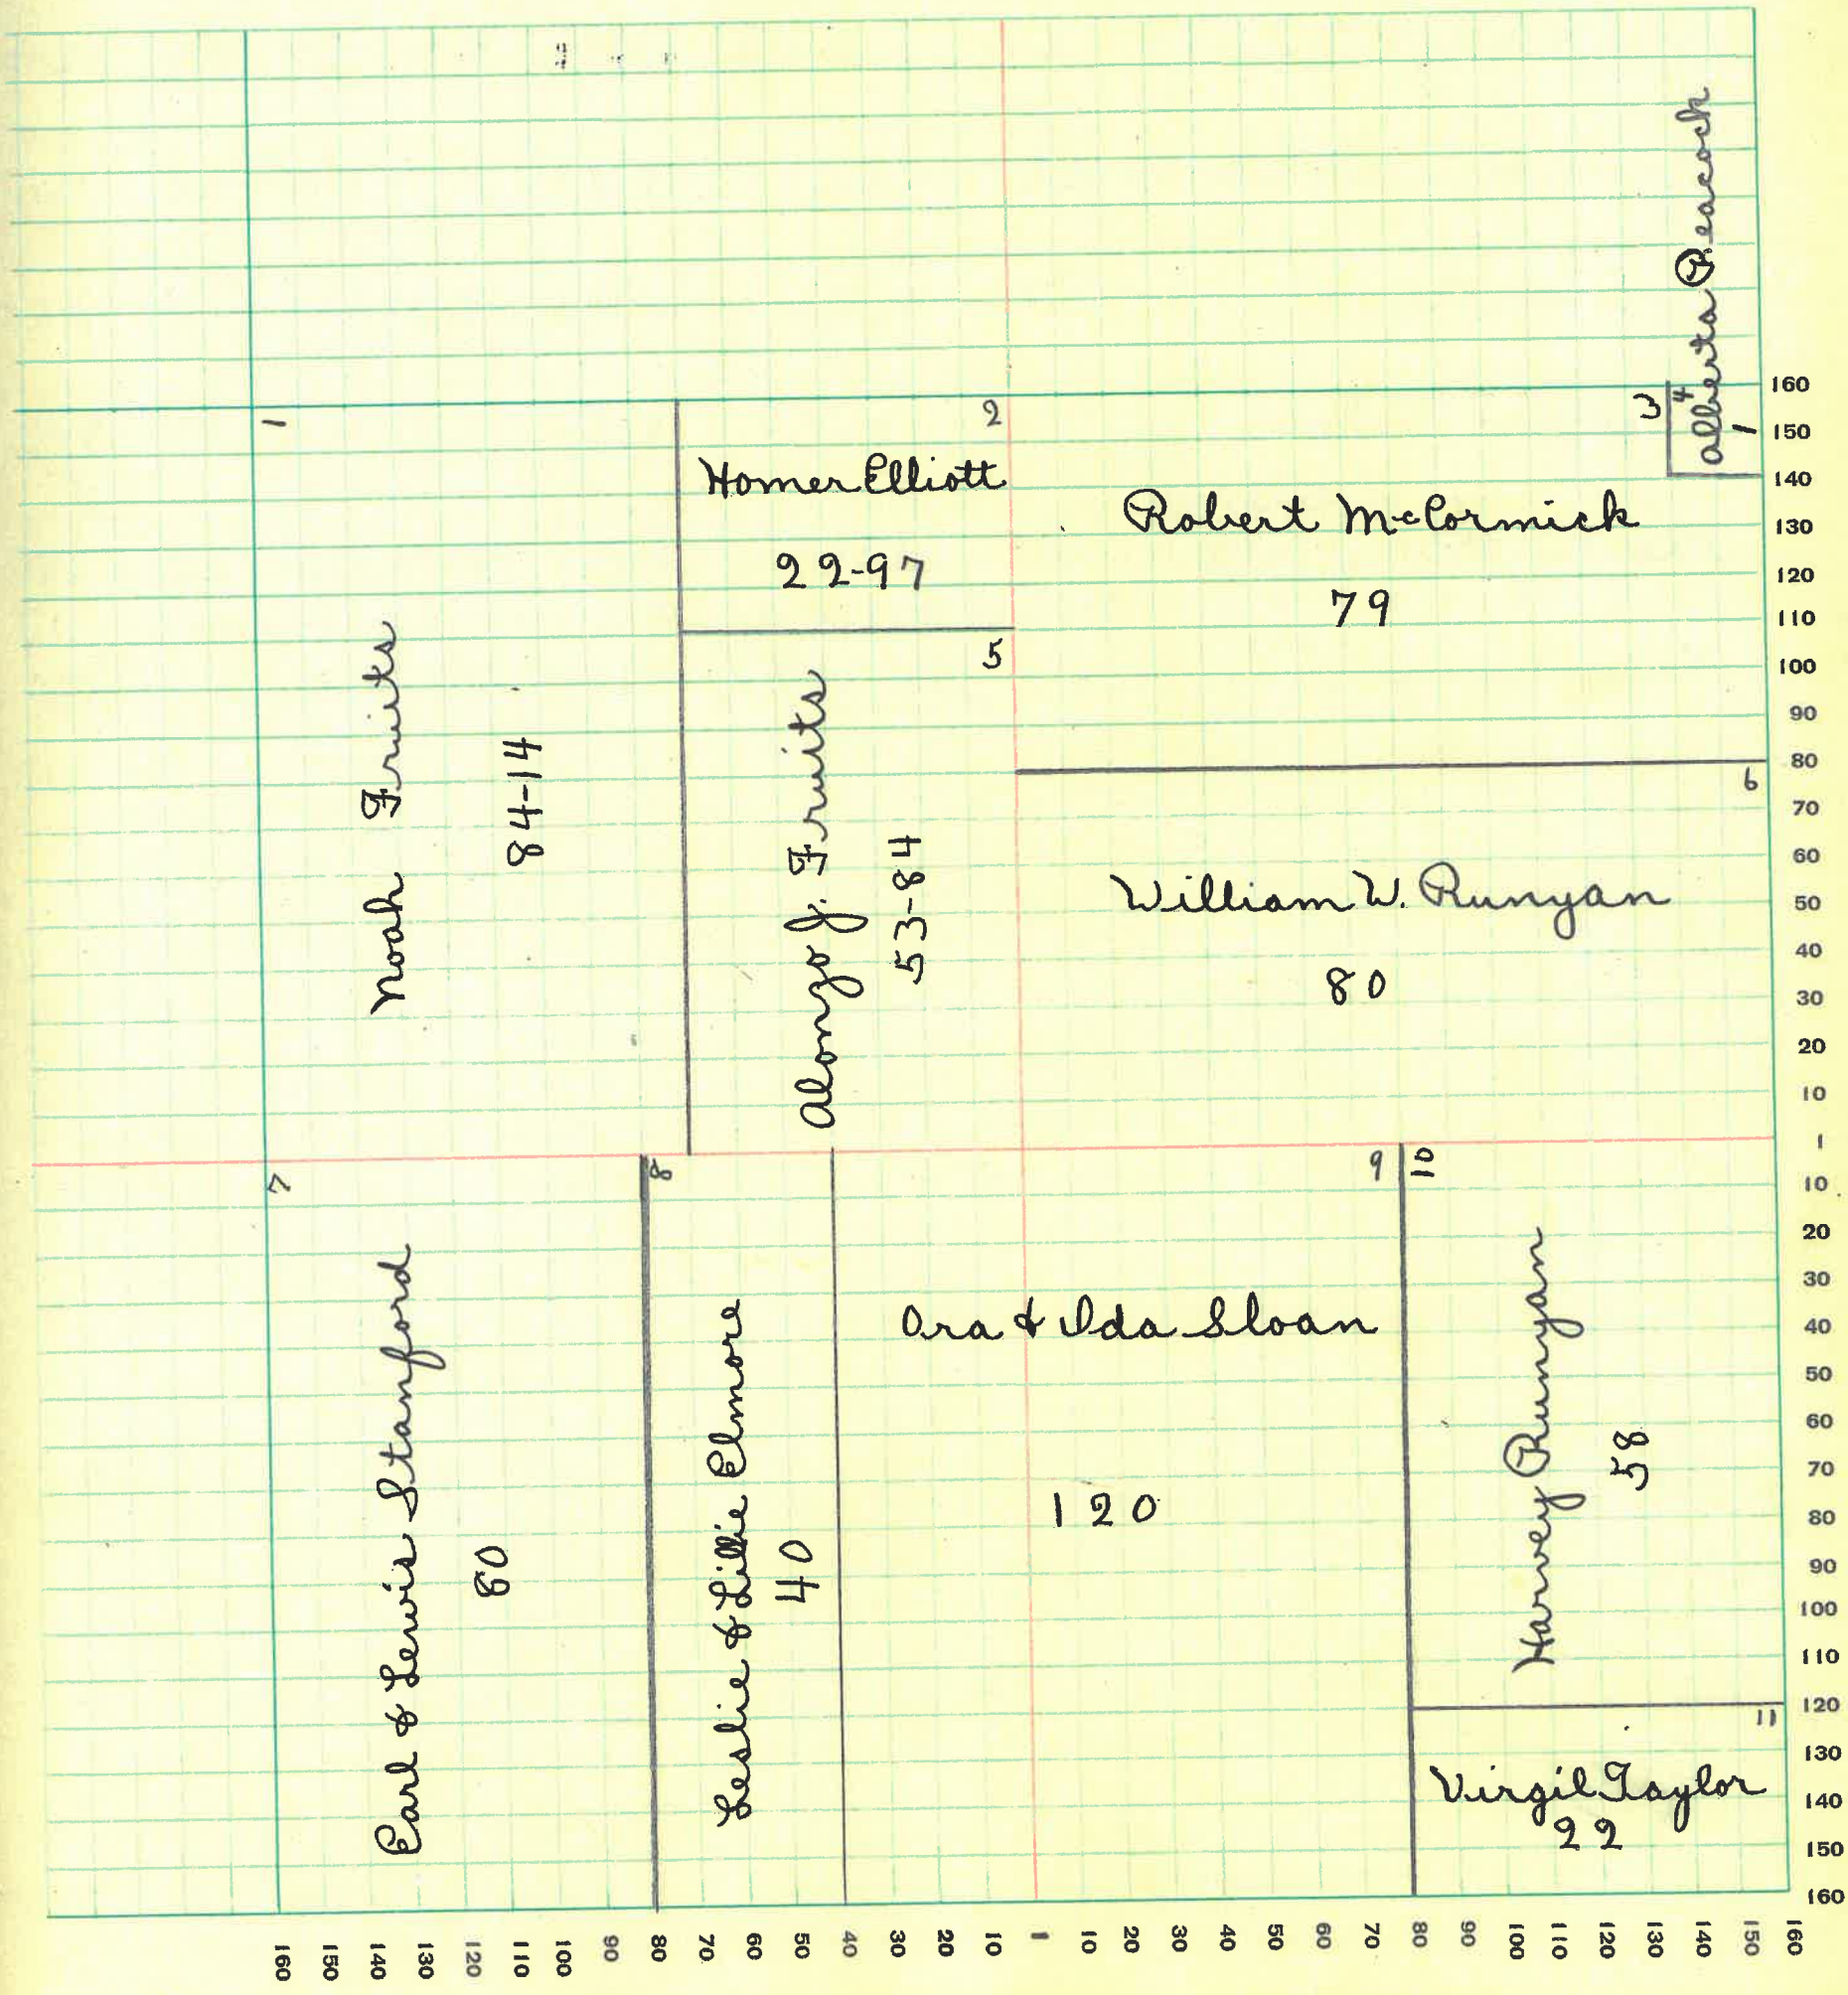 1
Noah Fruits
84-14
2
Homer Elliott
22-97
3
Robert McCormick
79
4
Alberta Peacock
1
5
Alonzo J. Fruits
53-84
6
William W. Runyan
80
7
Earl & Lewis Stanford
80
8
Leslie & Lillie Elmore
40
9
Ora & Ida Sloan
120
10
Harvey Runyan
58
11
Virgil Taylor
22
160
150
140
130
120
110
100
90
80
70
60
50
40
30
20
10
1
10
20
30
40
50
60
70
80
90
100
110
120
130
140
150
160
160 150 140 130 120 110 100 90 80 70 60 50 40 30 20 10 1 10 20 30 40 50 60 70 80 90 100 110 120 130 140 150 160